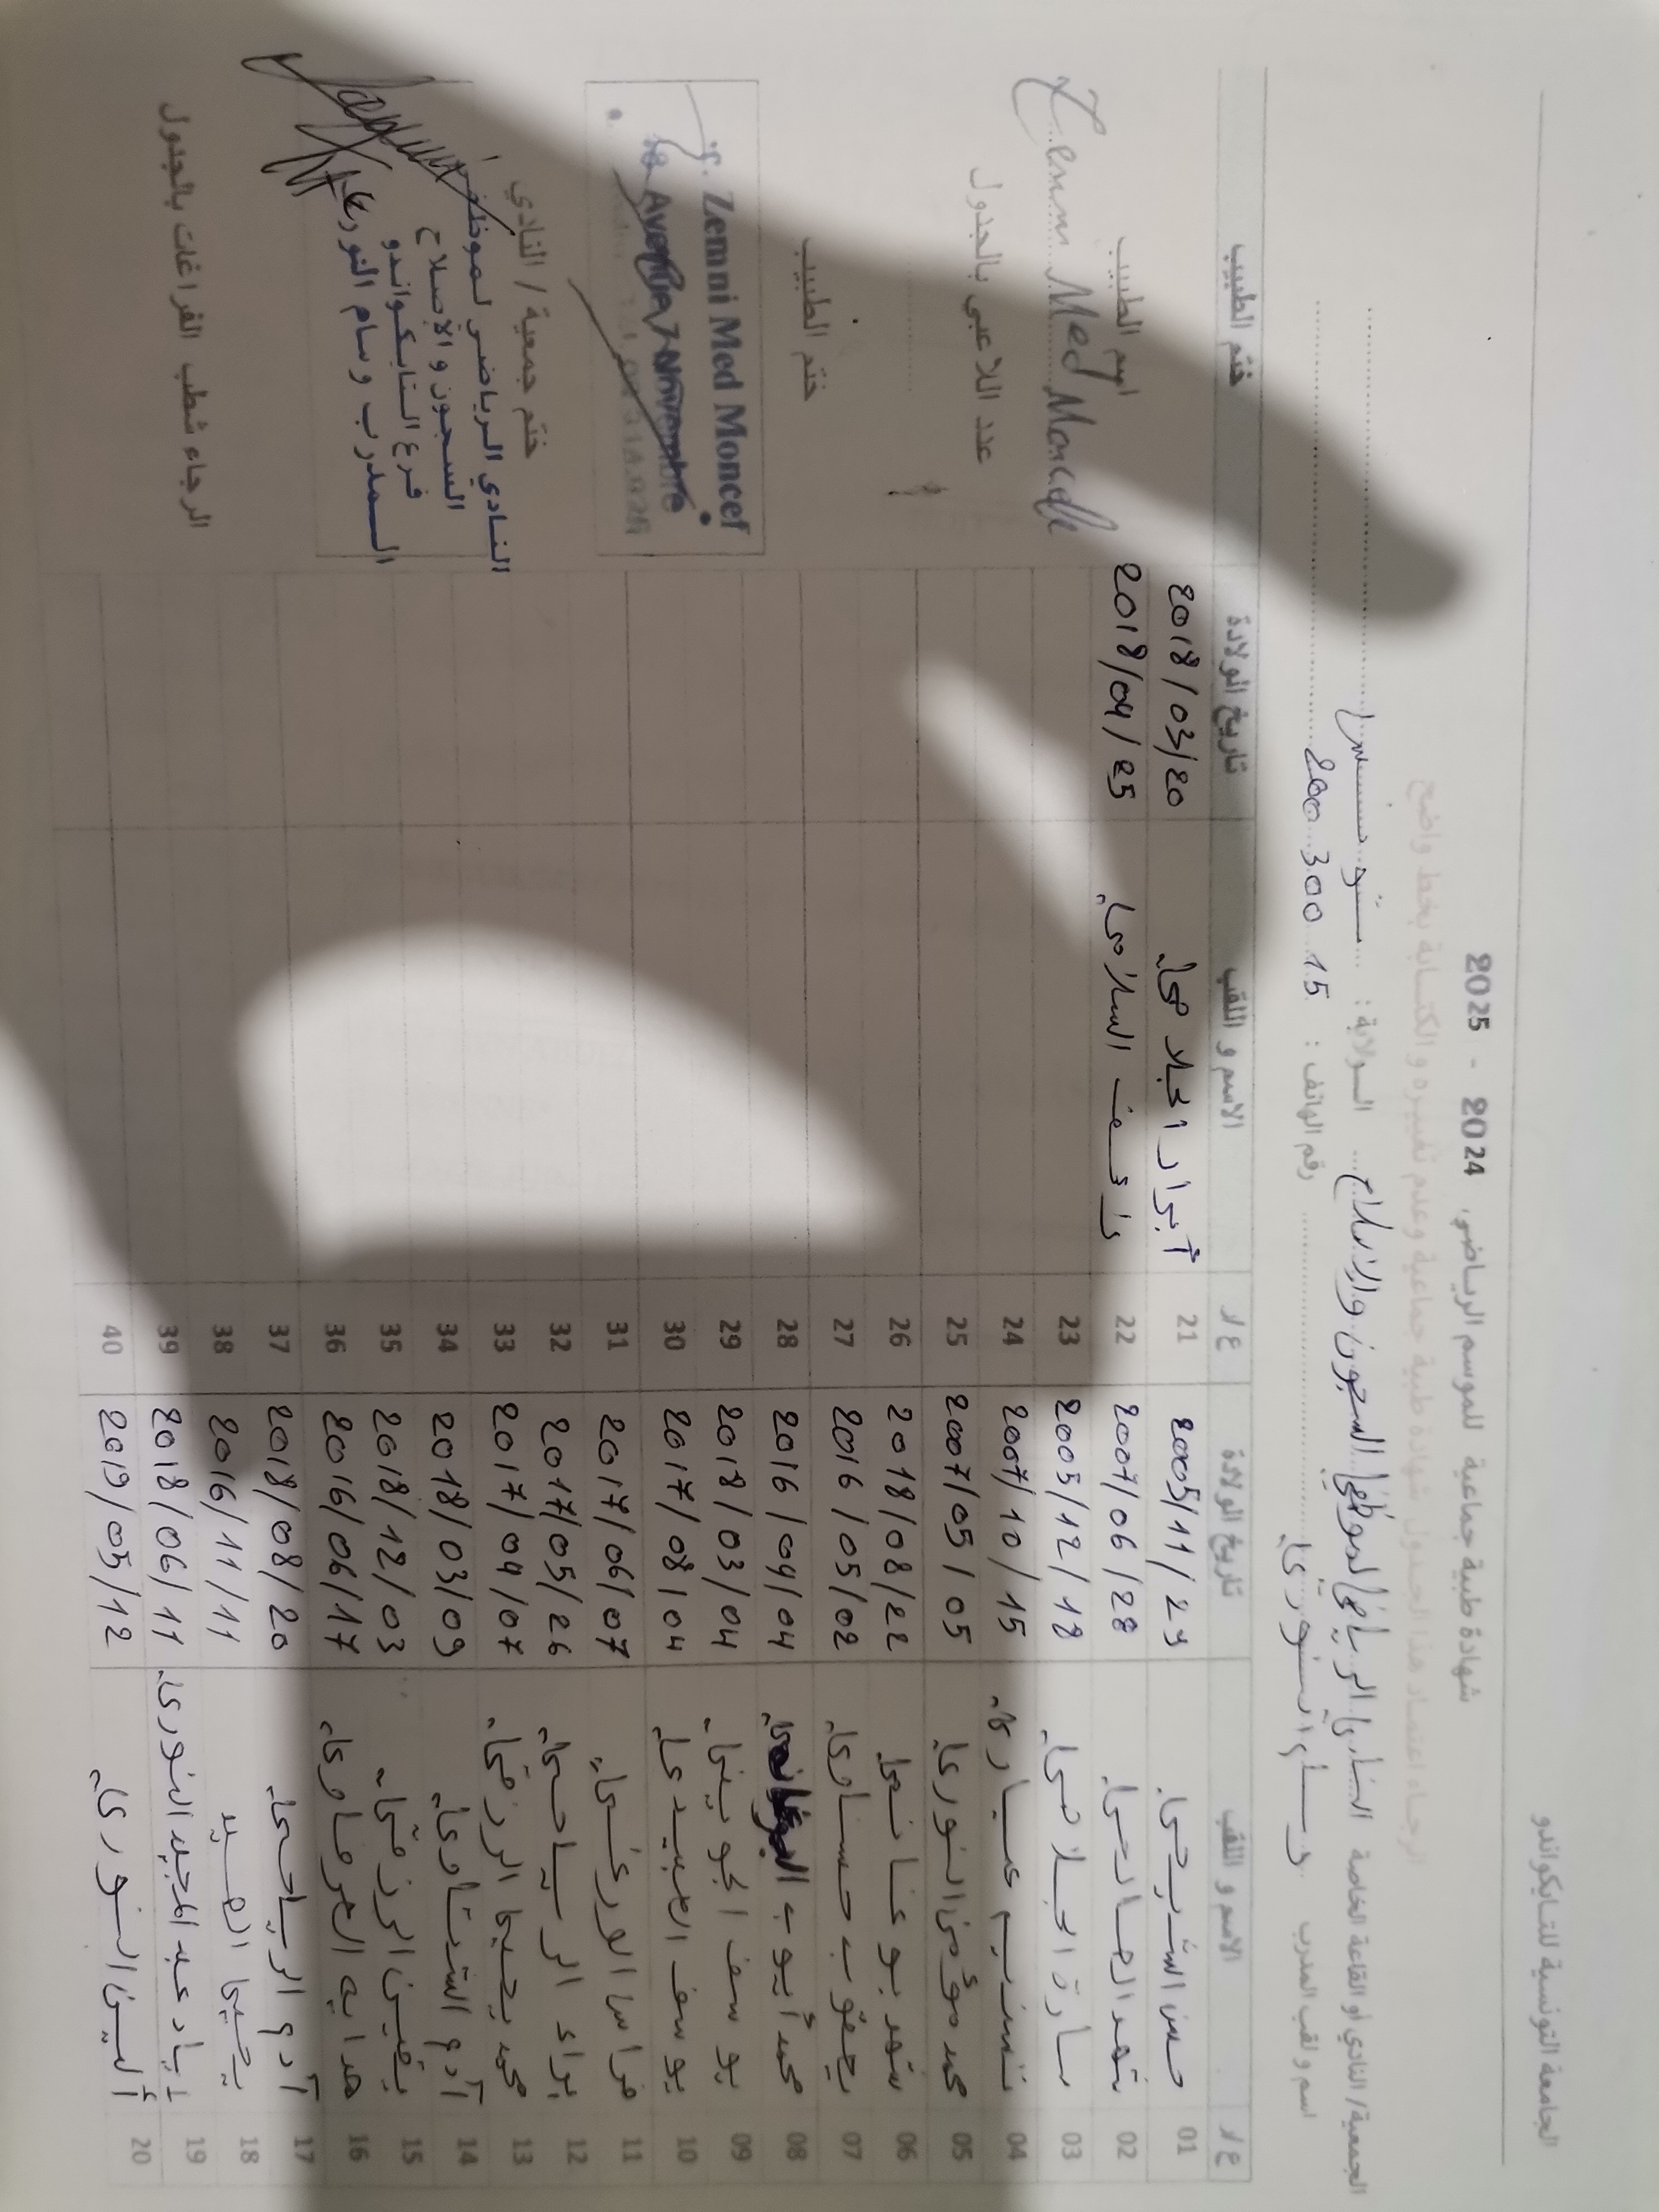 الجامعة التونسية للتايكواندو
شهادة طبية جماعية للموسم الرياضي 2024 - 2025
الرجاء اعتماد هذا الجدول شهادة طبية جماعية وعدم تغييره والكتابة بخط واضح
الجمعية/ النادي أو القاعة الخاصة النادي الرياضي لموظفي السجون والإصلاح الولاية : تونس
اسم و لقب المدرب وسام النوري رقم الهاتف : 15 300 200
ع ر الاسم و اللقب تاريخ الولادة ع ر الاسم و اللقب تاريخ الولادة ختم الطبيب
01 حسن الشريحي 2005/11/29 21 أبرار الجلاصي 2018/03/20
02 2007/06/28 22 السلامي 2018/04/25
03 سارة الجلاصي 2005/12/18 23
04 تسنيم عيساوي 2007/10/15 24
05 محمد مؤمن النوري 2007/05/05 25
06 بوغانمي 2018/08/22 26
07 يعقوب حسناوي 2016/05/02 27
08 محمد أيوب 2016/04/04 28
09 يوسف الجويني 2018/03/04 29
10 يوسف العبيدي 2017/08/04 30
11 فراس الورغي 2017/06/07 31
12 براء الرياحي 2017/05/26 32
13 محمد يحيى الرزقي 2017/04/07 33
14 آدم الشتاوي 2018/03/09 34
15 يقين الرزقي 2018/12/03 35
16 هداية العرفاوي 2016/06/17 36
17 آدم الرياحي 2018/08/20 37
18 يحيى الصيد 2016/11/11 38
19 إياد عبد المجيد النوري 2018/06/11 39
20 أليسن النوري 2019/05/12 40
اسم الطبيب
Zemni Med Moncef
عدد اللاعبي بالجدول
ختم الطبيب
Zemni Med Moncef
Avenue 7 Novembre
ختم جمعية / النادي
النادي الرياضي لموظفي
السجون و الإصلاح
فرع التايكواندو
المدرب وسام النوري
الرجاء شطب الفراغات بالجدول